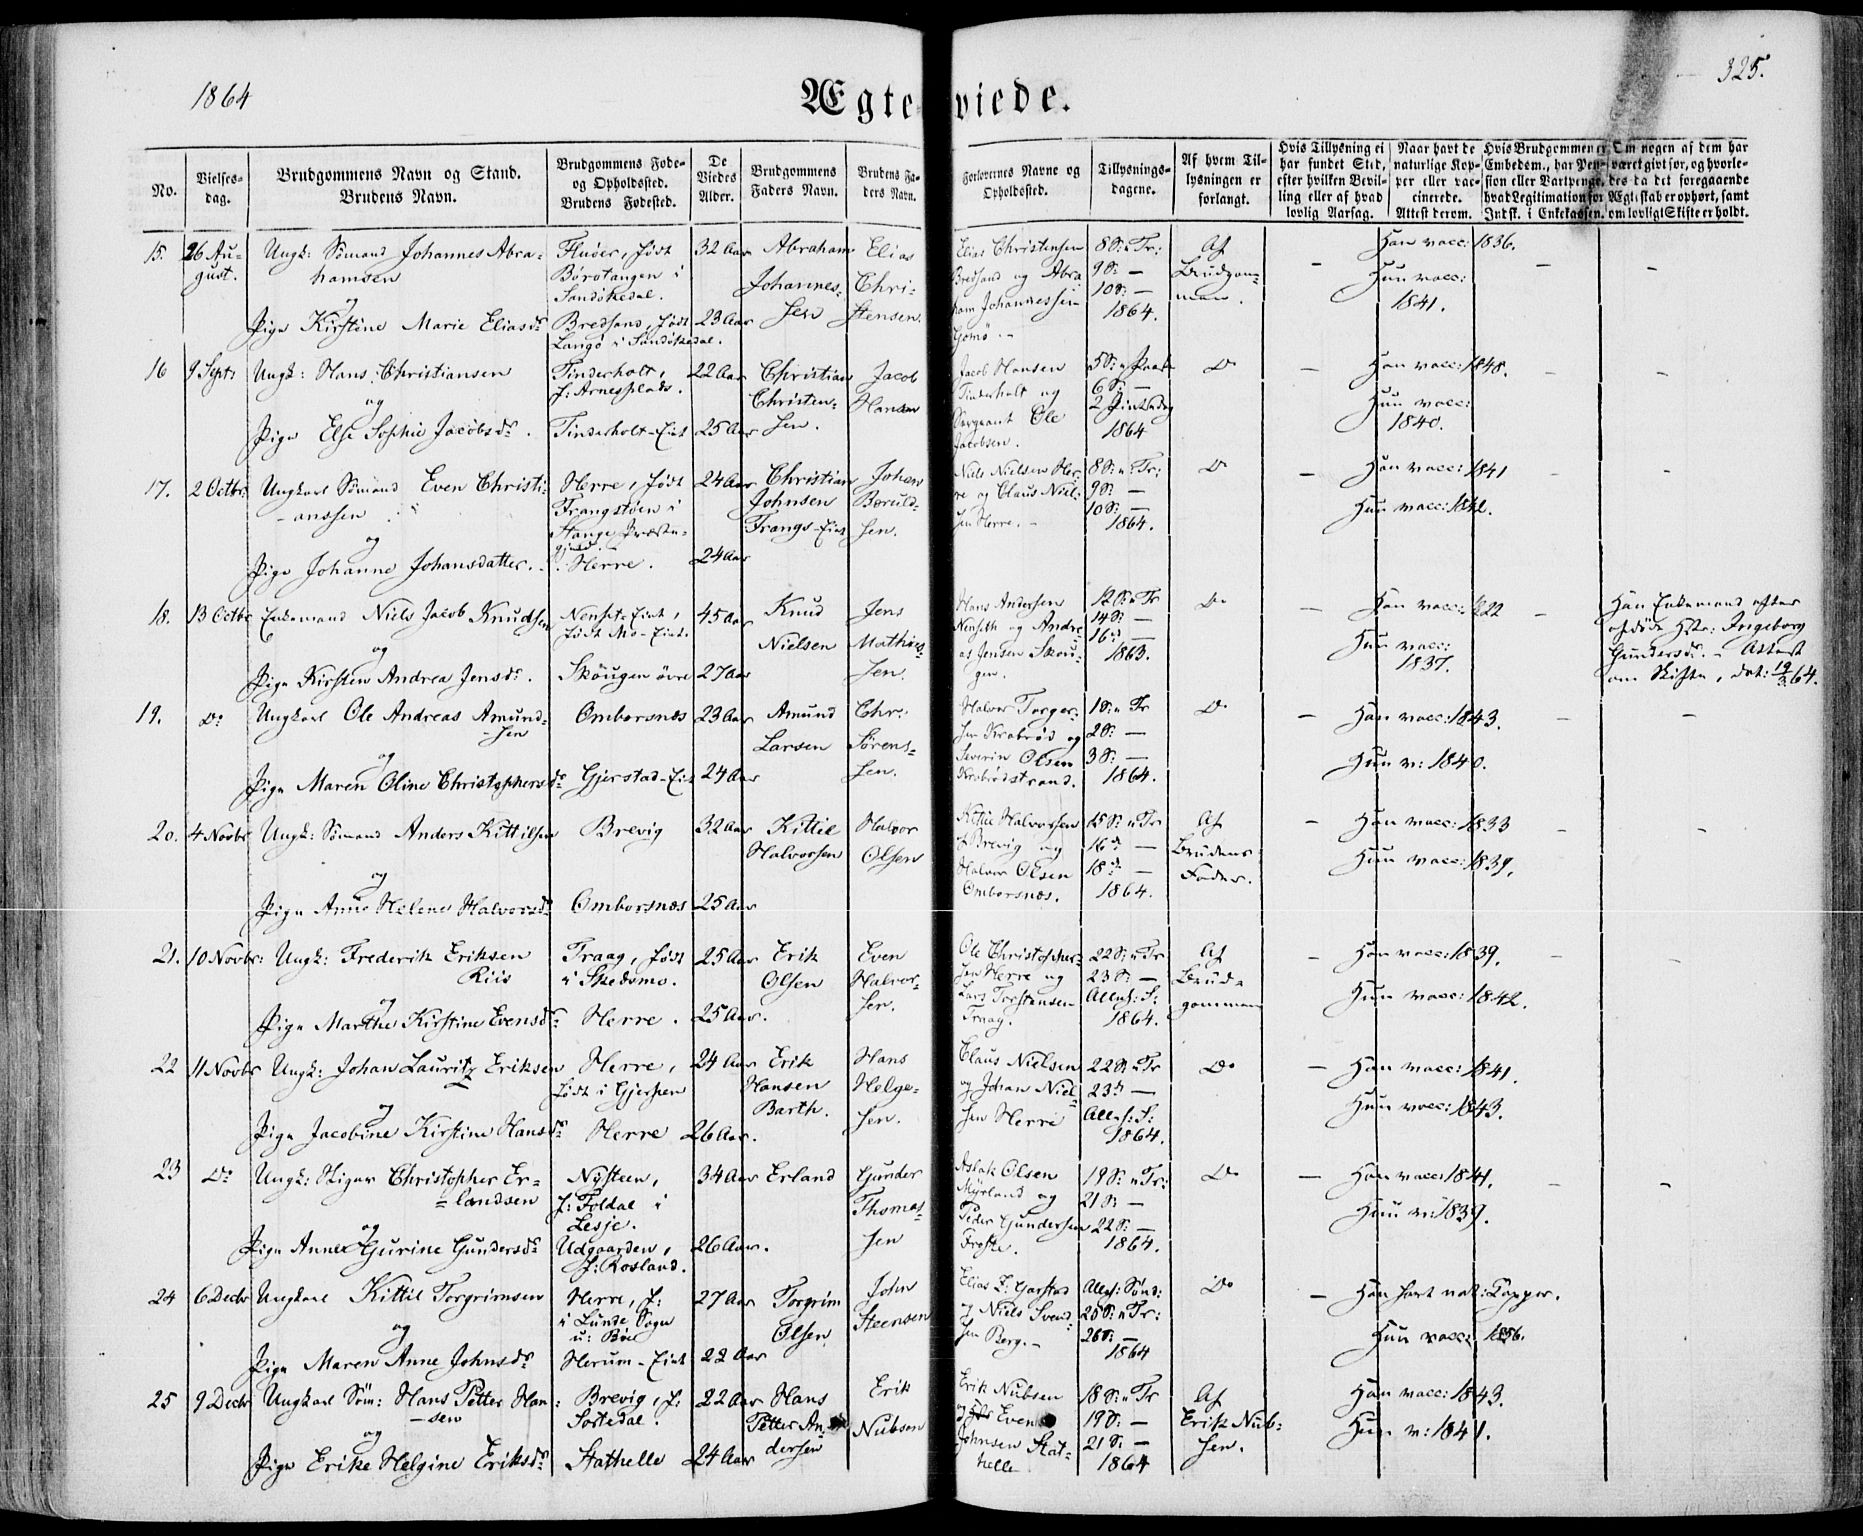 1864
Ægteviede.
325.
No.
Vielses-
dag.
Brudgommens Navn og Stand.
Brudens Navn.
Brudgommens Føde-
og Opholdssted.
Brudens Fødested.
De
Viedes
Alder.
Brudgommens
Faders Navn.
Brudens Fa-
ders Navn.
Forlovernes Navne og
Opholdssted.
Tillysnings-
dagene.
Af hvem Til-
lysningen er
forlangt.
Hvis Tillysning ei
har fundet Sted,
efter hvilken Bevil-
ling eller af hvad
lovlig Aarsag.
Naar havt de
naturlige Kop-
per eller vac-
cinerede.
Attest derom.
Hvis Brudgommen er
Embedsm., har Pen-
sion eller Vartpenge,
hvad Legitimation for
Indsk. i Enkekassen.
Om nogen af dem har
været givt før, og hvorle-
des da det foregaaende
Ægteskab er ophørt, samt
om lovligt Skifte er holdt.
15.
26 Au-
gust.
Ungk: Sömand Johannes Abra-
hamsen
og
Pige Kirstine Marie Eliasdr
Fluöer, födt
Börötangen i
Sandökedal.
Bredsand, födt
Langö i Sandökedal.
32 Aar
23 Aar
Abraham
Johannes-
sen
Elias
Chri-
stensen.
Elias Christensen
Bredsand og Abra
ham Johannessen
Gomö.
8 S. n Tr:
9 S. —
10 S. —
1864.
Af
Brudgom-
men.
Han vacc: 1836.
Hun vacc:
1841.
16
9 Sept:
Ungk: Hans Christiansen
og
Pige Else Sophie Jacobsdr.
Tinderholt,
f: Arnesplads.
Tinderholt-Eiet
22 Aar
25 Aar
Christian
Christen-
sen.
Jacob
Hansen
Jacob Hansen
Tinderholt og
Sergeant Ole
Jacobsen.
5 S. n Paask
6 S. —
2 Pintsedag
1864
Do
Han vacc: 1848.
Hun vacc:
1840.
17.
2 Octbr:
Ungkarl Sömand Even Christi-
anssen
og
Pige Johanne Johansdatter.
Herre, födt
Frangstöen i
Stange Præste-
gjeld.
Herre.
24 Aar
24 Aar
Christian
Johnsen
Frangs-Eiet
Johan
Beruld-
sen.
Niels Nielsen Her-
re og Claus Niel-
sen Herre.
8 S. n Tr:
9 S. —
10 S. —
1864.
Do
Han vacc: 1841
Hun vacc: 1842.
18.
13 Octbr
Enkemand Niels Jacob Knudsen
og
Pige Kirsten Andrea Jensdr.
Nenset-Eiet,
födt Mo-Eiet.
Skougen övre
45 Aar
27 Aar
Knud
Nielsen
Jens
Mathias-
sen.
Hans Andersen
Nenseth og Andre
as Jensen Skou-
gen.
12 S. n Tr
14 S. —
16 d —
1863.
Do
Han vacc: 1822
Hun vacc:
1837.
Han Enkemand efter
afdöde Hstr: Ingeborg
Gundersdr. - Attest
om Skifte, dat: 19/3 64.
19.
Do
Ungkarl Ole Andreas Amund-
sen
og
Pige Maren Oline Christophersdr
Ombersnæs
Gjerstad-Eiet
23 Aar
24 Aar
Amund
Larsen
Chr:
Sörens-
sen.
Halvor Torger-
sen Krabröd og
Severin Olsen
Krabrödstrand.
1 S. n Tr
2 S. —
3 S. —
1864.
Do
Han vacc: 1843.
Hun v: 1840.
20.
4 Novbr
Ungk: Sömand Anders Kittilsen
og
Pige Anne Helene Halvorsdr
Brevig
Ombersnæs
32 Aar
25 Aar
Kittil
Halvorsen
Halvor
Olsen
Kittil Halvorsen
Brevig og
Halvor Olsen
Ombersnæs.
15 S. n Tr
16 d —
18 d —
1864.
Af
Brudens
Fader.
Han vacc: 1833
Hun vacc: 1839.
21.
10 Novbr:
Ungk: Frederik Eriksen
Riis
og
Pige Marthe Kirstine Evensdr
Traag, födt
i Skedsmo.
Herre.
25 Aar
25 Aar.
Erik
Olsen
Even
Halvor-
sen.
Ole Christopher-
sen Herre og
Lars Torstensen
Traag.
22 S. n Tr
23 S. —
Alleh: S:
1864.
Af
Brud-
gommen
Han vacc: 1839.
Hun vacc: 1842.
22
11 Novbr
Ungk: Johan Lauritz Eriksen
og
Pige Jacobine Kirstine Hansdr
Herre,
födt i Gjerpen
Herre
24 Aar
26 Aar.
Erik
Hansen
Barth.
Hans
Helge-
sen.
Claus Nielsen
og Johan Niel-
sen Herre
22 S. n Tr
23 d —
Alleh: S:
1864.
Do
Han vacc: 1841.
Hun vacc: 1843.
23
Do
Ungk: Skigar Christopher Er-
landsen
og
Pige Anne Gurine Gundersdr
Nysteen,
f: Foldal i
Lesje.
Udgaarden,
f: Rosland.
34 Aar
26 Aar.
Erland
Gunder
Thomas-
sen
Aslak Olsen
Myrland og
Peder Gundersen
19 S. n Tr:
21 S. —
22 S. —
1864.
Do
Han vacc: 1841.
Hun v: 1839.
24
6 Decbr
Ungkarl Kittil Torgrimsen
og
Pige Maren Anne Johnsdr
Herre, f:
i Lunde Sogn
u: Böe
Herum-Eiet
27 Aar
22 Aar
Torgrim
Olsen
John
Steensen
Niels Svend-
sen Berg.
Alleh: Sönd:
25 S. n Tr:
26 S. —
1864
Do
Han havt nat: Copper.
Hun vacc: 1856.
25
9 Decbr
Ungkarl Söm: Hans Petter Han-
sen
og
Pige Erike Helgine Eriksdr
Brevig, f:
Sortedal.
Stathelle
22 Aar
24 Aar
Hans
Petter An-
dersen
Erik
Nubsen
Erik Nubsen
og Even
Johnsen Stat-
helle
18 S. n Tr
19 S. —
21 S. —
1864
Af
Erik Nub-
sen.
Han vacc: 1843.
Hun v: 1841.